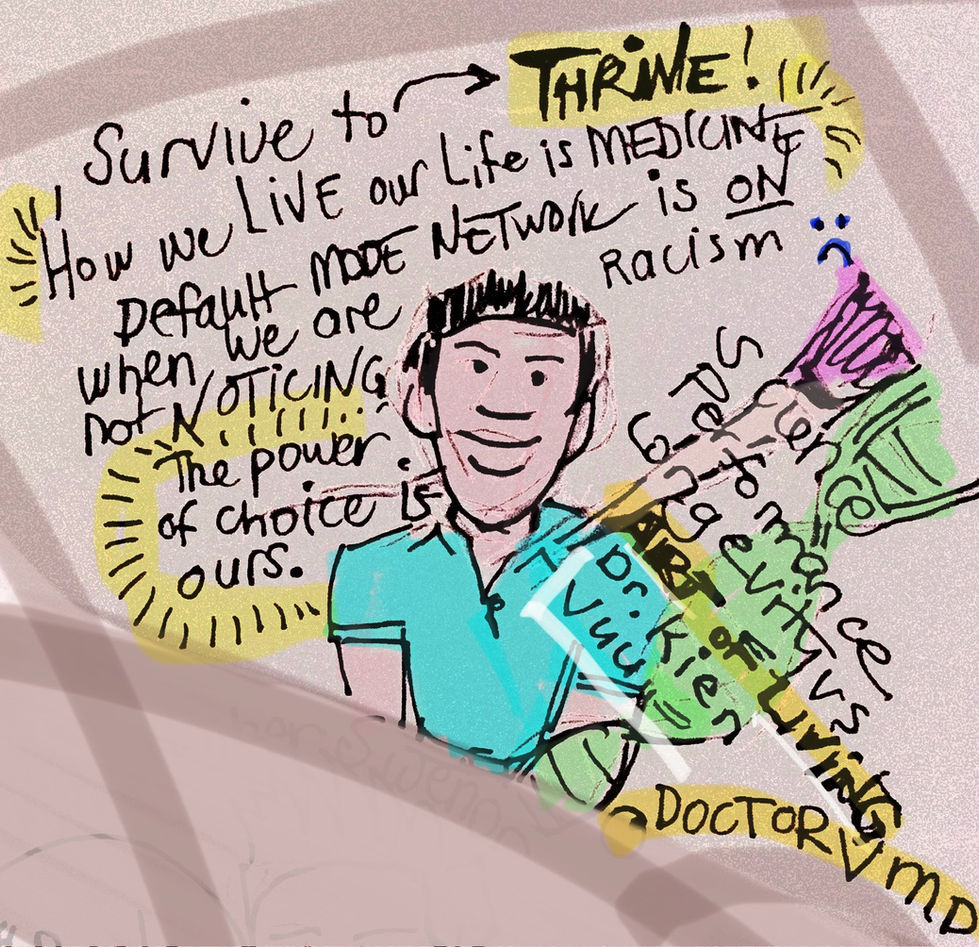 Survive to → THRIVE!
How we LIVE our Life is MEDICINE
Default MODE NETWORK is ON
when we are
not NOTICING
Racism
The power
of choice is
ours.
Performance
Longevity vs
ART of LIVING
Dr. Kien
Vuu
DOCTOR V MD